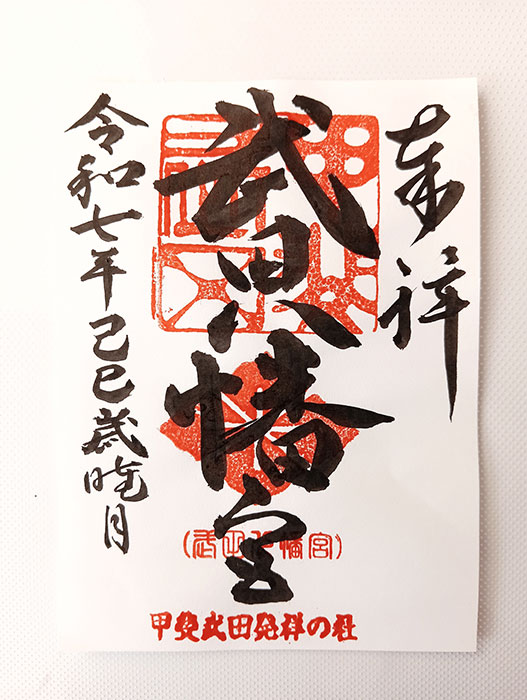 奉拝
武田八幡宮
令和七年己巳歳月
(武田八幡宮)
甲斐武田発祥の社